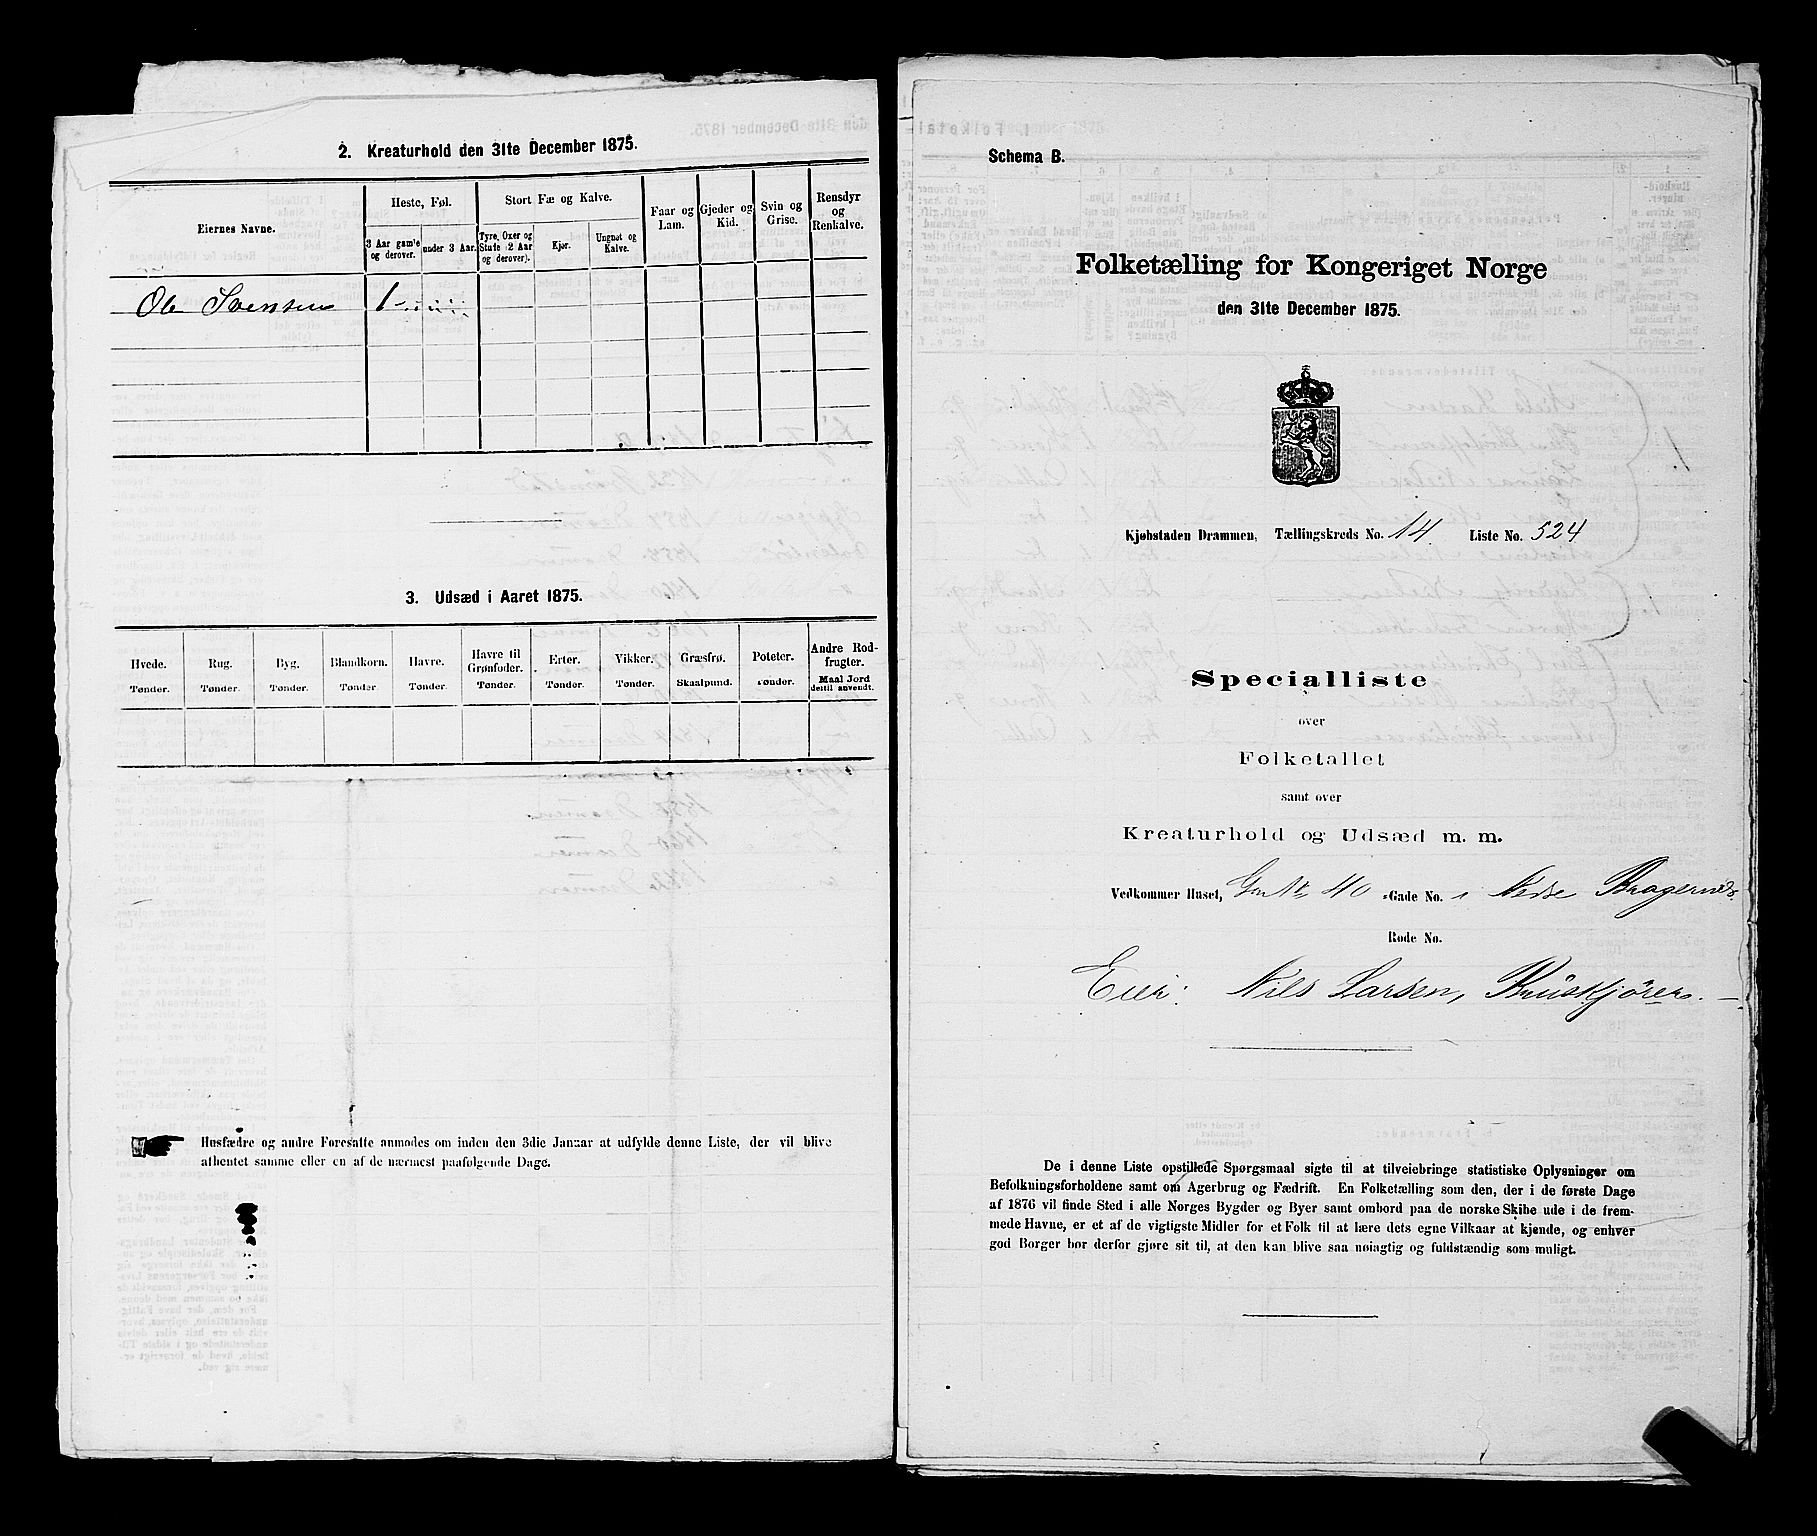 2. Kreaturhold den 31te December 1875.
Eiernes Navne.
Heste, Føl.
Stort Fæ og Kalve.
Faar og Lam.
Gjeder og Kid.
Svin og Grise.
Rensdyr og Renkalve.
3 Aar gamle og derover.
under 3 Aar.
Tyre, Oxer og Stute (2 Aar og derover).
Kjør.
Ungnøt og Kalve.
Ole Svensen 1
3. Udsæd i Aaret 1875.
Hvede. Tønder.
Rug. Tønder.
Byg. Tønder.
Blandkorn. Tønder.
Havre. Tønder.
Havre til Grønfoder. Tønder.
Erter. Tønder.
Vikker. Tønder.
Græsfrø. Skaalpund.
Poteter. Tønder.
Andre Rodfrugter. Maal Jord dertil anvendt.
Husfædre og andre Foresatte anmodes om inden den 3die Januar at udfylde denne Liste, der vil blive
afhentet samme eller en af de nærmest paafølgende Dage.
Schema B.
Folketælling for Kongeriget Norge
den 31te December 1875.
Kjøbstaden Drammen, Tællingskreds No. 14. Liste No. 524
Specialliste
over
Folketallet
samt over
Kreaturhold og Udsæd m. m.
Vedkommer Huset, 40 Gade No. i Nedre Bragernes
Rode No.
Eier: Nils Larsen, Bruskjører.
De i denne Liste opstillede Spørgsmaal sigte til at tilveiebringe statistiske Oplysninger om
Befolkningsforholdene samt om Agerbrug og Fædrift. En Folketælling som den, der i de første Dage
af 1876 vil finde Sted i alle Norges Bygder og Byer samt ombord paa de norske Skibe ude i de frem-
mede Havne, er et af de vigtigste Midler for et Folk til at lære dets egne Vilkaar at kjende, og enhver
god Borger bør derfor gjøre sit til, at den kan blive saa nøiagtig og fuldstændig som muligt.